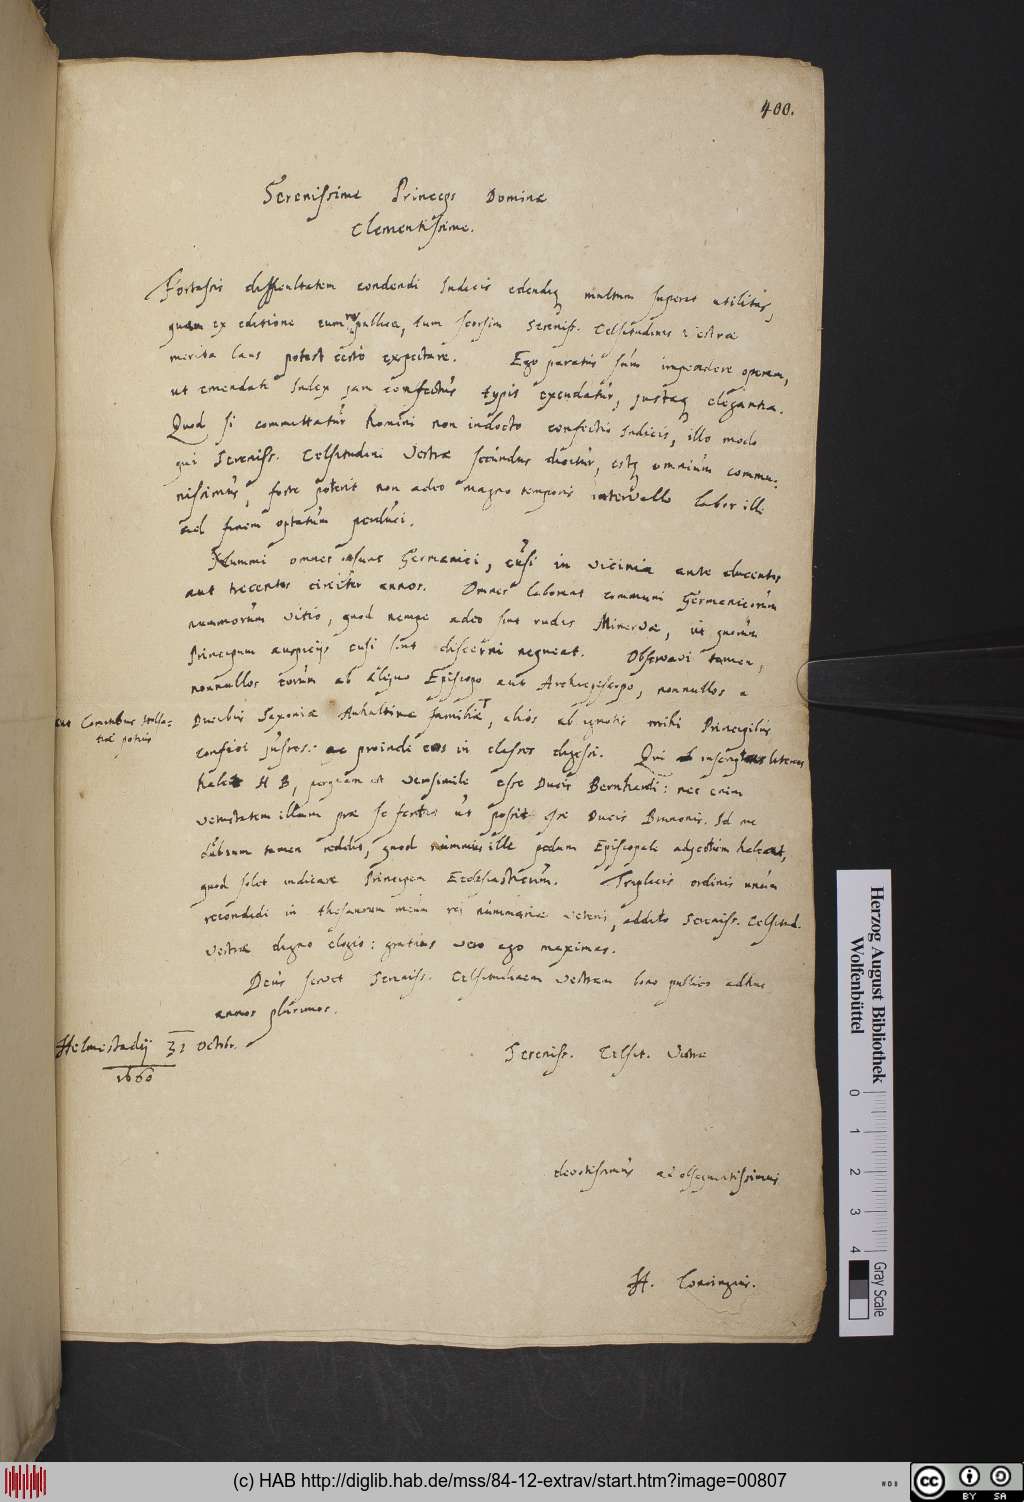 400.
Serenissime Princeps Domine
Clementissime.
Fortassis difficultatem condendi Indicis edendiq multum superet utilitas,
quam ex editione cum publica, tum seorsim Sereniss. Celsitudinis Vestræ
merita laus potest certo expectare. Ego paratus sum impendere operam,
ut emendate Index jam confectus typis excudatur, justaq elegantia.
Quod si committatur homini non indocto confectio Indicis, illo modo
qui Sereniss. Celsitudini Vestræ secundus dicitur, estq omnium commu-
nissimus, forte poterit non adeo magno temporis intervallo labor illi
ad finem optatum perduci.
Nummi omnes sunt Germanici, cusi in vicinia ante ducentos
aut trecentos circiter annos. Omnes laborant communi Germanicorum
nummorum vitio, quod nempe adeo sint rudis Minervæ, ut quorum
Principum auspiciis cusi sint discerni nequeat. Observavi tamen,
nonnullos eorum ab aliquo Episcopo aut Archiepiscopo, nonnullos a
Ducibus Saxoniæ Anhaltinæ familiæ, alios ab ignotis mihi Principibus
aut Comitibus
potius
confici jusses: ac proinde eos in classes digessi. Qui inscriptas literas
habet H B, perquam est verisimile esse Ducis Bernhardi: nec enim
vetustatem illam præ se fert ut possit esse Ducis Brunonis. Id me
dubium tamen reddit, quod nummus ille pedum Episcopale adjectum habeat,
quod solet indicare Principem Ecclesiasticum. Triplicis ordinis unum
recondidi in thesaurum meum rei nummariæ veteris, addito Sereniss. Celsitud.
Vestræ digno elogio: gratias vero ago maximas.
Deus servet Sereniss. Celsitudinem Vestram bono publico adhuc
annos plurimos.
Helmestadij 31 Octobr.
1660
Sereniss. Celsit. Vestræ
devotissimus ac obsequentissimus
H. Conringius.
Herzog August Bibliothek
Wolfenbüttel
0 1 2 3 4
Gray Scale
(c) HAB http://diglib.hab.de/mss/84-12-extrav/start.htm?image=00807
cc BY SA